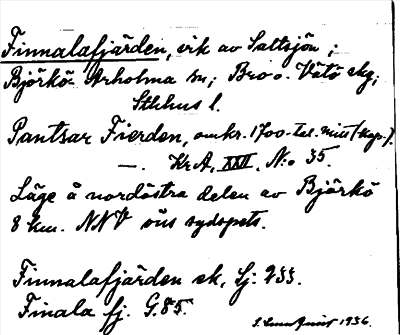 Finnalafjärden, vik av Saltsjön;
Björkö Arholma sn; Bro o. Vätö skg;
Sthlms l.
Pantsar Fierden, omkr. 1700-tal. mitt (kop.).
—. KrA, XXII, N:o 35.
Läge å nordöstra delen av Björkö
8 km. NNV öns sydspets.
Finnalafjärden ek, Sj: 255.
Finala fj. G.85.
1936.